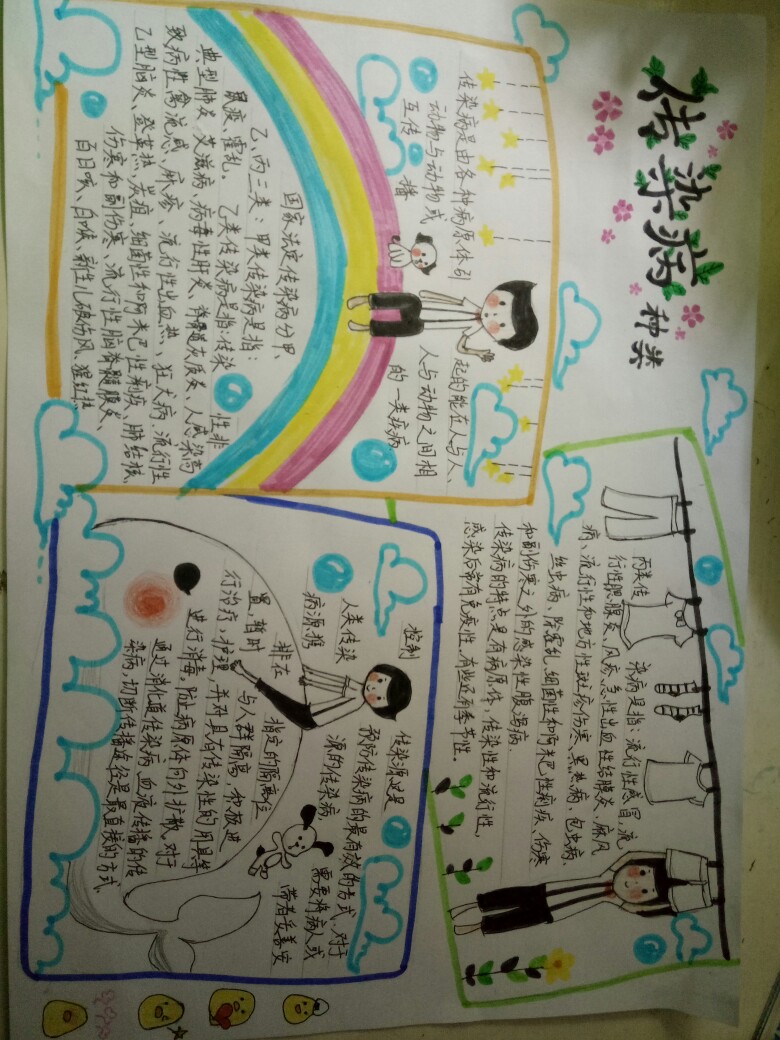 传染病种类
传染病是由各种病原体引
起的能在人与人、
动物与动物或
人与动物之间相
互传播
的一类疾病
国家法定传染病分甲、
乙、丙三类：甲类传染病是指：
鼠疫、霍乱、乙类传染病是指：传染
性非
典型肺炎、艾滋病、病毒性肝炎、脊髓灰质炎、人感染高
致病性禽流感、麻疹、流行性出血热、狂犬病、流行性
乙型脑炎、登革热、炭疽、细菌性和阿米巴性痢疾、肺结核、
伤寒和副伤寒、流行性脑脊髓膜炎、
百日咳、白喉、新生儿破伤风、猩红热
丙类传
染病是指：流行性感冒，流
行性腮腺炎、风疹、急性出血性结膜炎、麻风
病、流行性和地方性斑疹伤寒、黑热病、包虫病、
丝虫病、除霍乱、细菌性和阿米巴性痢疾、伤寒
和副伤寒之外的感染性腹泻病.
传染病的特点是有病原体、传染性和流行性，
感染后常有免疫性。有些还有季节性。
控制
传染源这是
人类传染
预防传染病的最有效的方式、对于
病源携
源的传染病，
需要将病人或
带者妥善安
排在
指定的隔离位
置，暂时
与人群隔离，积极进
行治疗，护理，并对具有传染性的
进行消毒。防止病原体向外扩散。对于
通过消化道传染病、血液传播的传
染病，切断传播途径是最直接的方式、